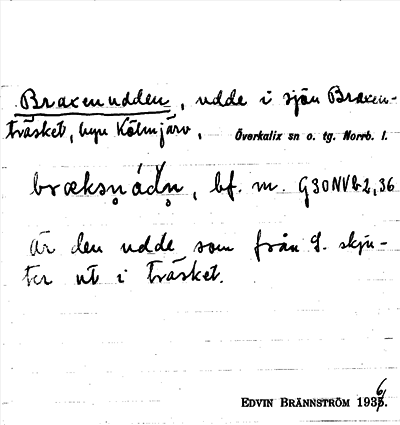 Braxenudden, udde i sjön Braxen-
träsket, byn Kölmjärv, Överkalix sn o. tg. Norrb. l.
bræksn̥ ádn̥, bf. m. G30NVb2,36
är den udde som från S. skju-
ter ut i träsket.
EDVIN BRÄNNSTRÖM 1936.